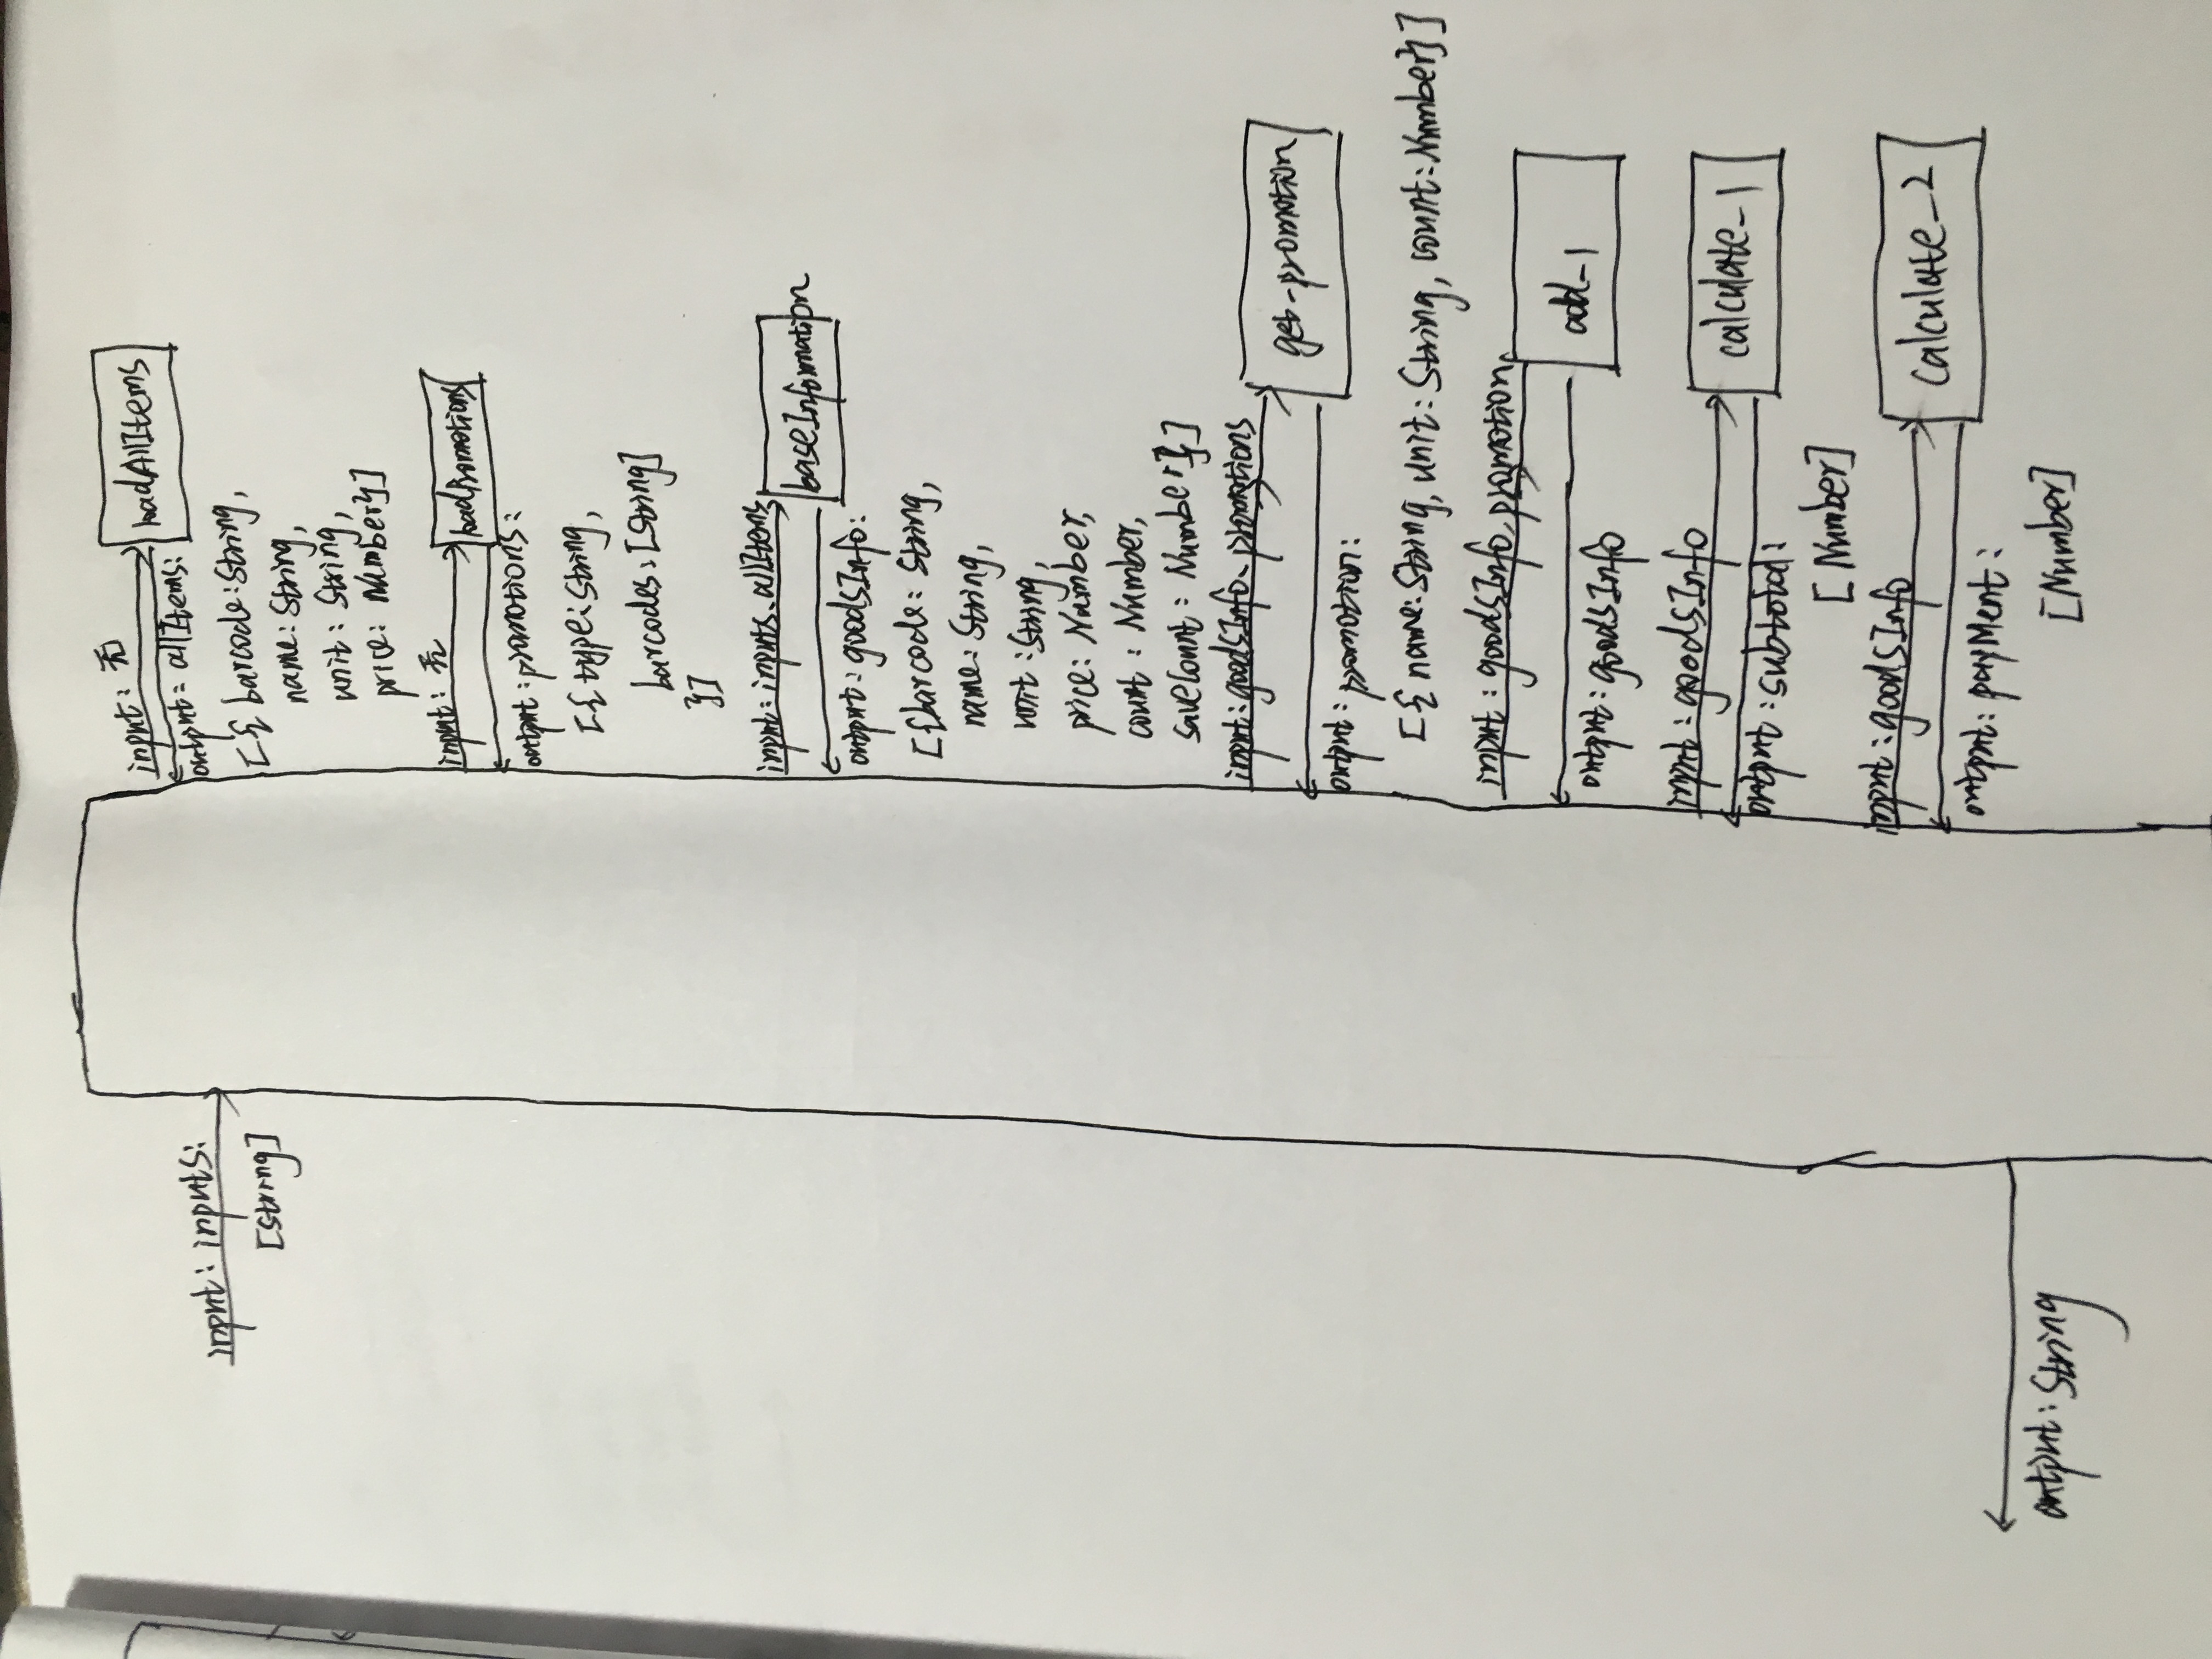 input: inputs:
[string]
input: 无
loadAllItems
output: allItems:
[{ barcode: String,
name: String,
unit: String,
price: Number}]
input: 无
loadPromotions
output: promotions:
[{ type: String,
barcodes: [String]
}]
input: inputs、allItems
baseInformation
output: goodsInfo:
[{barcode: String,
name: String,
unit: String,
price: Number,
count: Number,
saveCount: Number}]
input: goodsInfo、promotions
get-promotion
output: promotion:
[{ name: String, unit: String, count: Number}]
input: goodsInfo、promotion
add_1
output: goodsInfo
input: goodsInfo
calculate_1
output: subtotal:
[Number]
input: goodsInfo
calculate_2
output: payMent:
[Number]
output: String